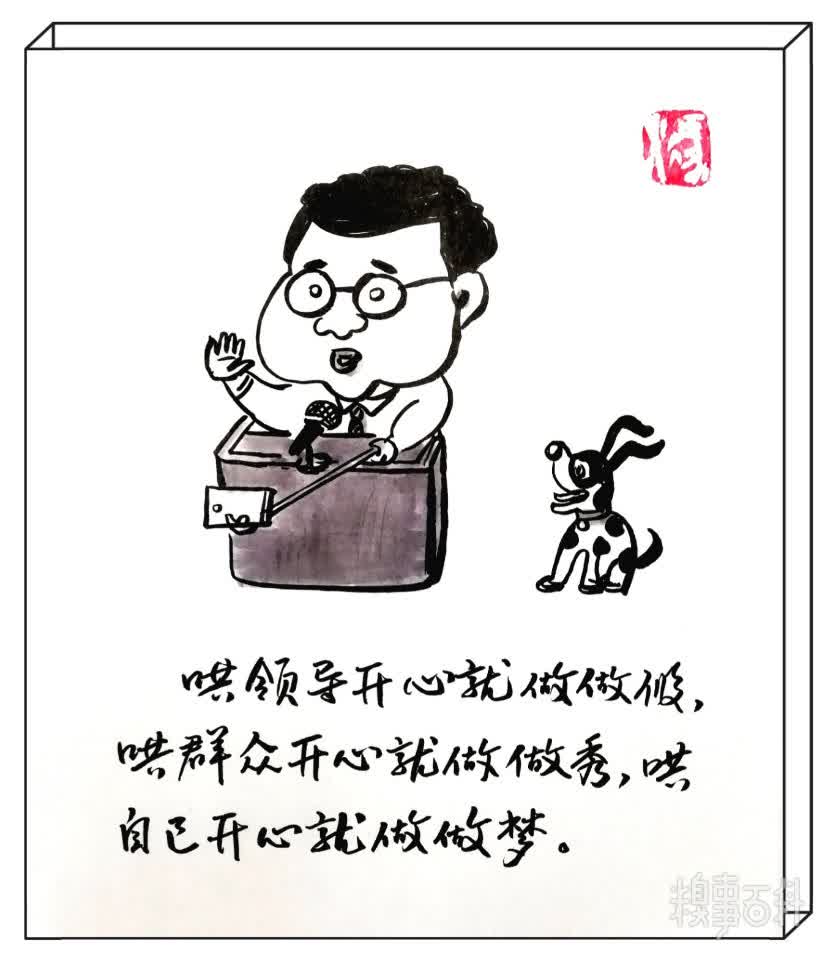 哄领导开心就做做假，
哄群众开心就做做秀，哄
自己开心就做做梦。
糗事百科